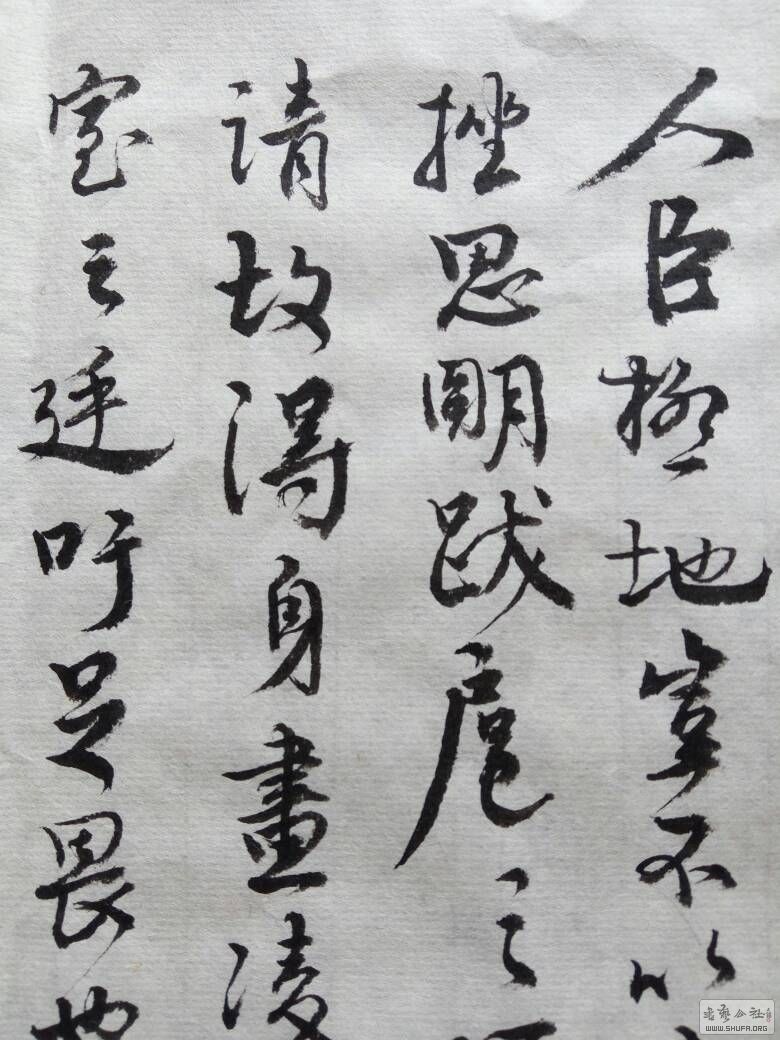 人臣極地豈不以
挫思明跋扈之
請故得身畫凌
室之廷吁足畏也
書藝公社
WWW.SHUFA.ORG